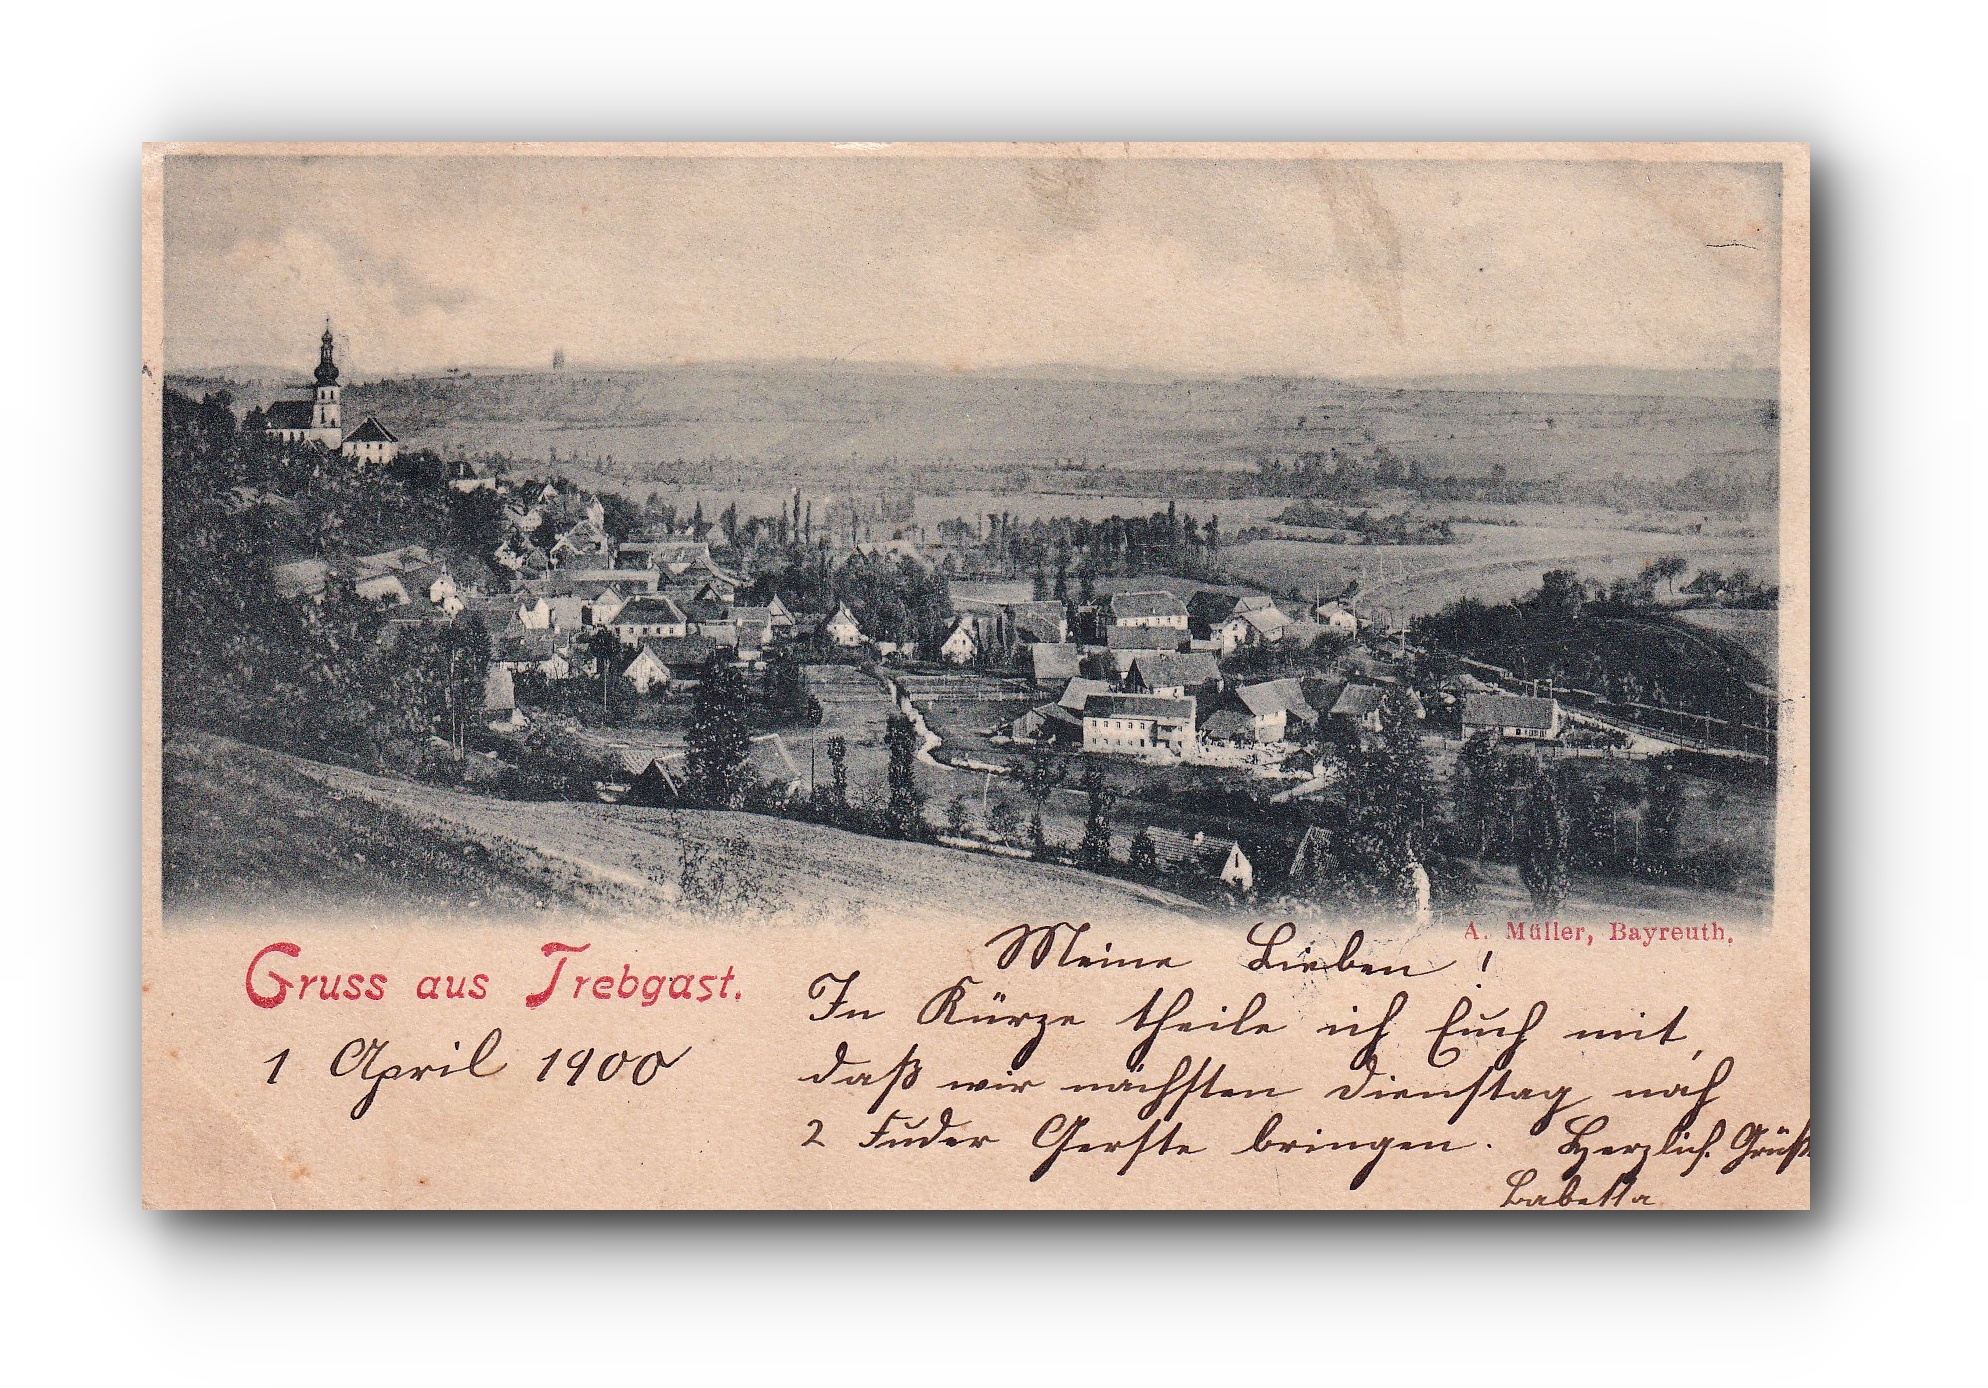 A. Müller, Bayreuth.
Gruss aus Trebgast.
1 April 1900
Meine Lieben!
In Kürze theile ich Euch mit,
daß wir nächsten Dienstag noch
2 Fuder Gerste bringen. Herzlich. Grüße
Babetta